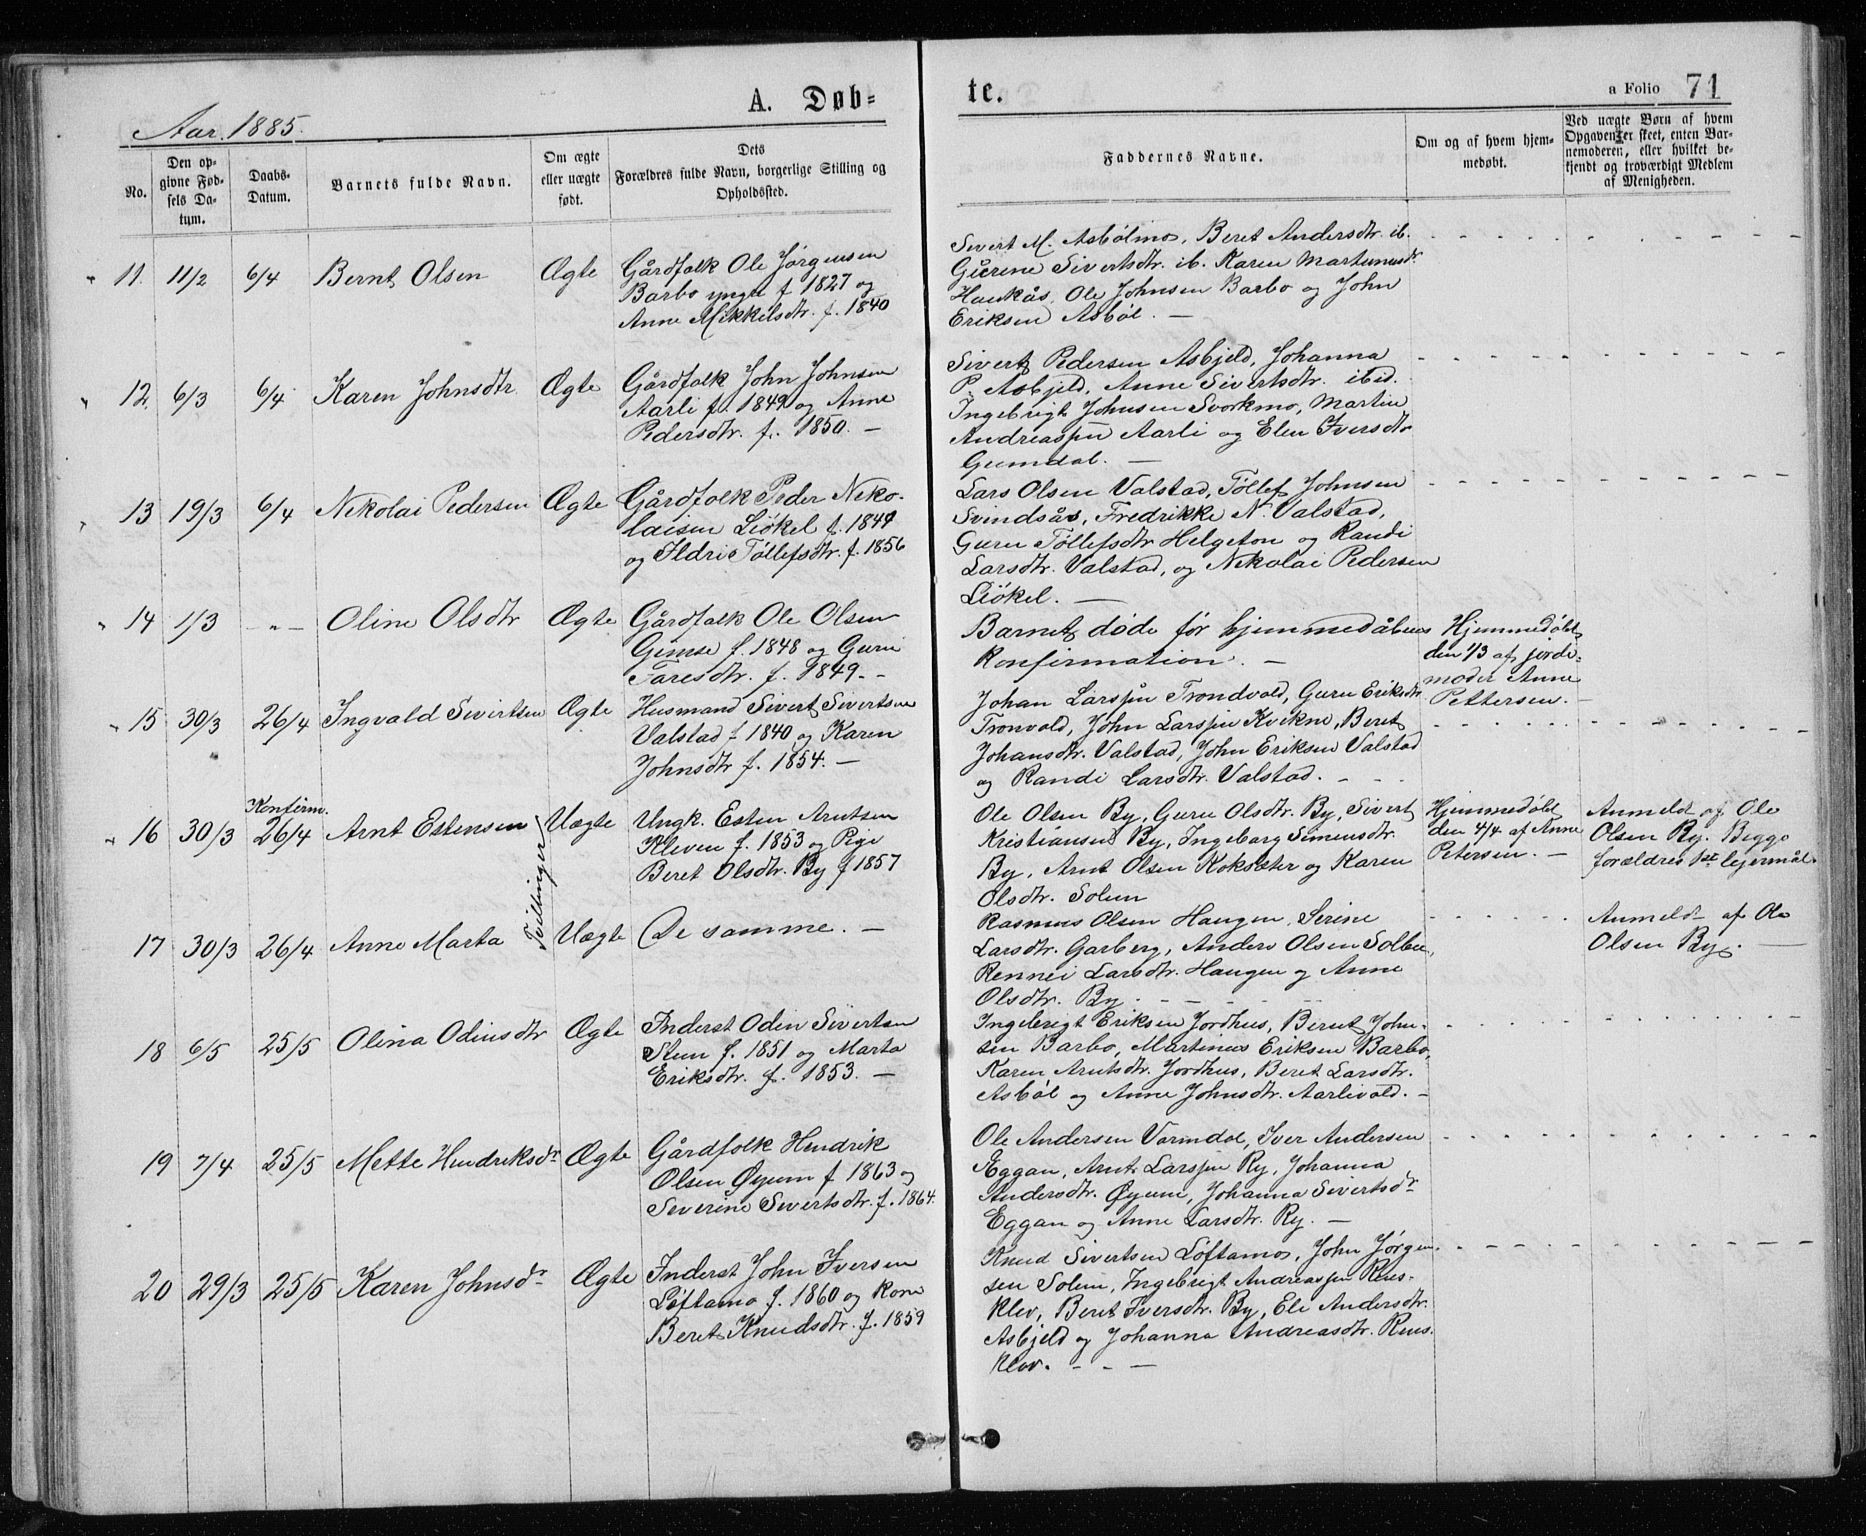 A. Døb-
te.
a Folio 71
Aar. 1885.
No.
Den op-
givne Fød-
sels Da-
tum.
Daabs-
Datum.
Barnets fulde Navn.
Om ægte
eller uægte
født.
Dets
Forældres fulde Navn, borgerlige Stilling og
Opholdssted.
Faddernes Navne.
Om og af hvem hjem-
medøbt.
Ved uægte Børn af hvem
Opgaven er skeet, enten Bar-
nemoderen, eller hvilket be-
kjendt og troværdigt Medlem
af Menigheden.
11. 11/2 6/4 Bernt Olsen Ægte
Gårdfolk Ole Jørgensen
Barbo yngre f 1827 og
Anne Mikkelsdtr. f. 1840
Sivert M. Asbølmo, Beret Andersdtr. ib.
Gurine Sivertsdtr. ib. Karen Martinusdr
Haukås, Ole Johnsen Barbo og John
Eriksen Asbøl. —
12. 6/3 6/4 Karen Johnsdtr Ægte
Gårdfolk John Johnsen
Aarli f. 1849 og Anne
Pedersdtr. f. 1850. —
Sivert Pedersen Asbjeld, Johanna
P. Asbjeld, Anne Sivertsdtr. ibid.
Ingebrigt Johnsen Svorkmo, Martin
Andreassen Aarli og Elen Iversdtr
Gumdal. —
13 19/3 6/4 Nikolai Pedersen Ægte
Gårdfolk Peder Niko-
laisen Liøkel f. 1849
og Ildri Tøllefsdtr. f. 1856
Lars Olsen Valstad, Tøllef Johnsen
Svindsås, Fredrikke N. Valstad,
Guru Tøllefsdtr Helgeton og Randi
Larsdtr. Valstad, og Nikolai Pedersen
Liøkel. —
14 1/3 -„- Oline Olsdtr Ægte
Gårdfolk Ole Olsen
Gimse f. 1848 og Guru
Taresdtr. f. 1849. -
Barnet døde før hjemmedåbens
Konfirmation. —
Hjemmedøbt
den 1/3 af jordi-
moder Anne
Pettersen. —
15 30/3 26/4 Ingvald Sivertsen Ægte
Husmand Sivert Sivertsen
Valstad f 1840 og Karen
Johnsdtr f. 1854. —
Johan Larssen Trondvold, Guru Eriksdtr
Tronvold, John Larssen Kvikne, Beret
Johansdtr. Valstad, John Eriksen Valstad
og Randi Larsdtr. Valstad. - -
16 30/3 Konfirm. 26/4 Arnt Estensen Uægte
Tvillinger
Ungk. Esten Arntsen
Kleven f. 1853 og Pige
Beret Olsdtr. By f 1857
Ole Olsen By, Guru Olsdtr. By, Sivert
Kristiansen By, Ingeborg Simensdtr.
By, Arnt Olsen Koksæter og Karen
Olsdtr. Solem
Hjemmedøbt
den 4/4 af Anne
Petersen. —
Anmeldt af Ole
Olsen By. Begge
forældres 1st lejermål.
17 30/3 26/4 Anne Marta Uægte
De samme. —
Rasmus Olsen Haugen, Serine
Larsdtr. Garberg, Anders Olsen Solbu,
Rennei Larsdtr. Haugen og Anne
Olsdtr. By. - - -
Anmeldt af Ole
Olsen By. —
18 6/5 25/5 Olina Odinsdtr Ægte
Inderst Oden Sivertsen
Stem f. 1851 og Marta
Eriksdtr. f. 1853. —
Ingebrigt Eriksen Jordhus, Bernt John-
sen Barbo, Martinus Eriksen Barbo,
Karen Arntsdtr. Jordhus, Beret Larsdtr.
Asbøl og Anne Johnsdtr. Aarlivold. -
19 7/4 25/5 Mette Hendriksdr Ægte
Gårdfolk Hendrik
Olsen Øyum f 1863 og
Severine Sivertsdtr. f. 1864.
Ole Andersen Vormdal, Iver Andersen
Eggan, Arnt Larssen Ry, Johanna
Andersdtr. Øyum, Johanna Sivertsdr
Eggan og Anne Larsdtr. Ry. —
20 29/3 25/5 Karen Johnsdr Ægte
Inderst John Iversen
Løftamo f. 1860 og Kone
Beret Knudsdtr. f. 1859
Knud Sivertsen Løftamo, John Jørgen-
sen Solem, Ingebrigt Andreassen Rius-
klev, Beret Iversdtr. By, Eli Andersdtr.
Asbjeld og Johanna Andreasdtr. Rius-
klev. - - —